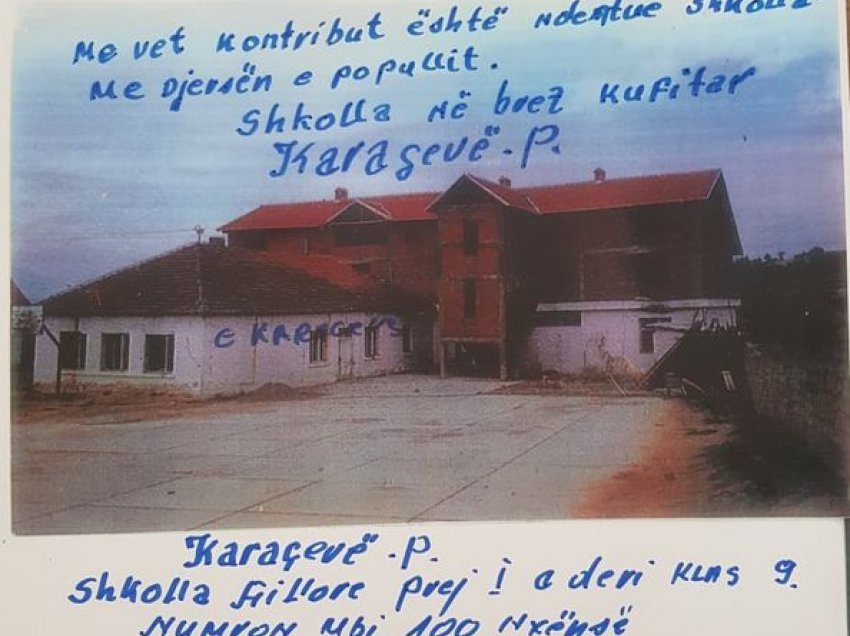 Me vet kontribut është ndertue shkolla
Me Djersën e popullit.
Shkolla në brez kufitar
Karaçevë.P.
E KARAÇEVËS
Karaçevë.P.
Shkolla fillore prej I a deri KLAS 9.
NUMRON Mbi 100 Nxënsë